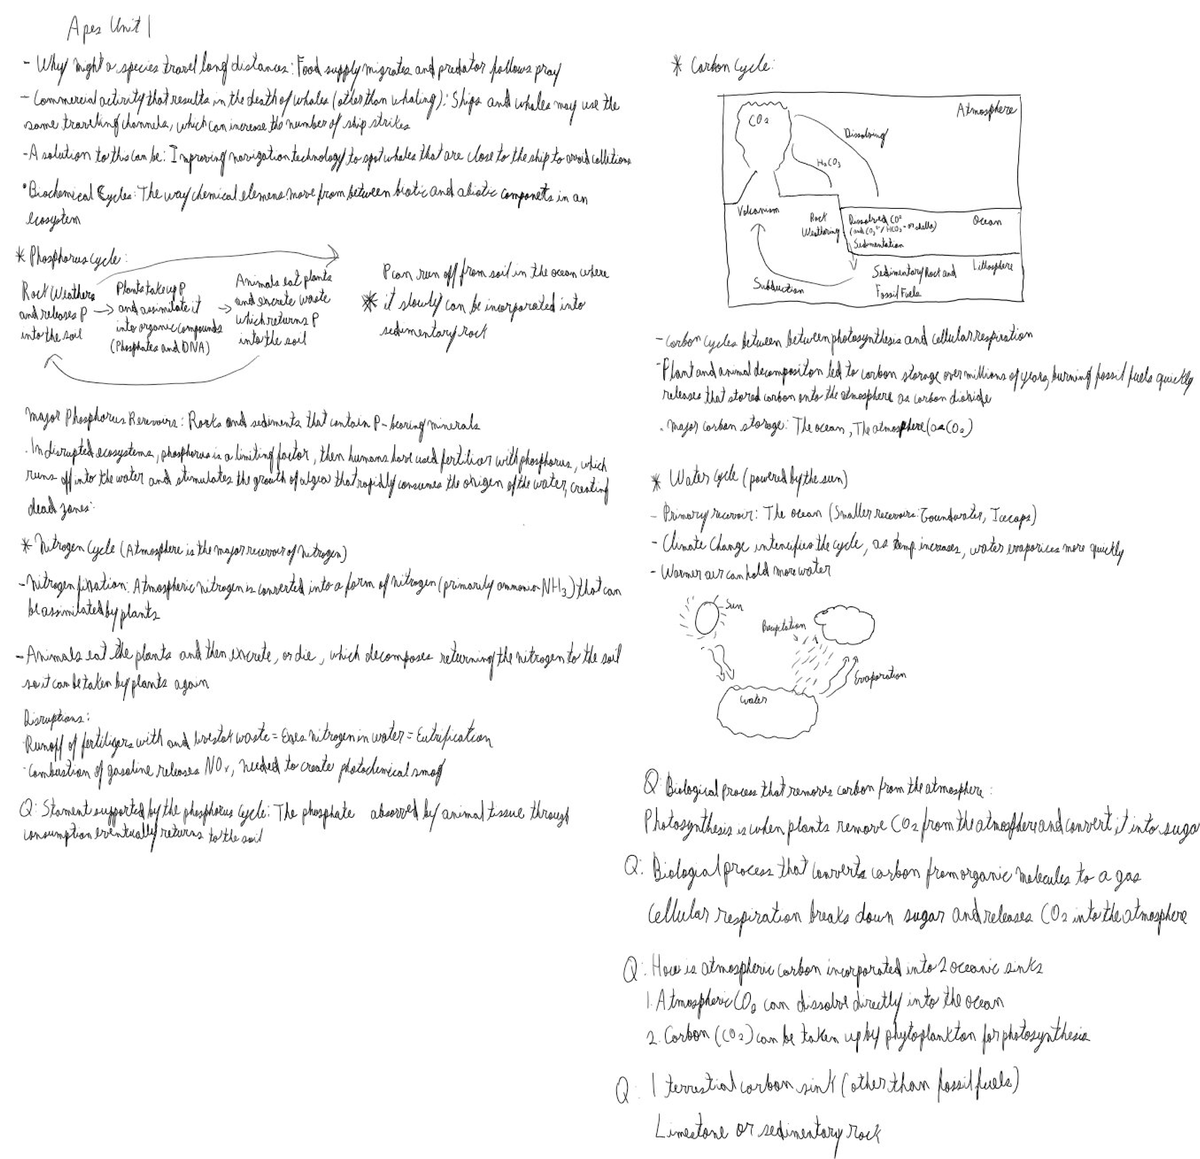 Apes Unit 1
- Why might a species travel long distances: Food supply migrates and predator follows pray
- Commercial activity that results in the death of whales (other than whaling): Ships and whales may use the
same traveling channels, which can increase the number of ship strikes
- A solution to this can be: Improving navigation technology to spot whales that are close to the ship to avoid collitions
• Biochemical Cycles: The way chemical elemens move from between biotic and abiotic componets in an
ecosystem
* Phosphorus cycle:
Rock Weathers
and releases P
into the soil
Plants take up P
and assimilate it
into organic compounds
(Phosphates and DNA)
Animals eat plants
and excrete waste
which returns P
into the soil
P can run off from soil in the ocean where
* it slowly can be incorporated into
sedimentary rock
Major Phosphorus Reservoirs: Rocks and sediments that contain P-bearing minerals
. In disrupted ecosystems, phosphorus is a limiting factor, then humans have used fertilizer with phosphorus, which
runs off into the water and stimulates the growth of algea that rapidly consumes the oxigen of the water, creating
dead zones.
* Nitrogen Cycle (Atmosphere is the major reservoir of nitrogen)
- Nitrogen fixation: Atmospheric nitrogen is converted into a form of nitrogen (primarily ammonia NH3) that can
be assimilated by plants
- Animals eat the plants and then excrete, or die, which decomposes returning the nitrogen to the soil
so it can be taken by plants again
Disruptions:
Runoff of fertilizers with and livestok waste = Exes nitrogen in water = Eutrification
· Combustion of gasoline releases NOx, needed to create photochemical smog
Q: Stament supported by the phosphorus cycle: The phosphate absorved by animal tissue through
consumption eventually returns to the soil
* Carbon Cycle:
Atmosphere
CO2
Dissolving
H2CO3
Volcanism
Rock
Weathering
Dissolved CO2
(and CO3²⁻/HCO3⁻ shells)
Sedimentation
Ocean
Sedimentary Rock and
Fossil Fuels
Lithosphere
Subduction
- Carbon cycles between between photosynthesis and cellular respiration
- Plant and animal decomposition led to carbon storage over millions of years, burning fossil fuels quickly
releases that stored carbon onto the atmosphere as carbon dioxide
. Major carbon storage: The ocean, The atmosphere (as CO2)
* Water cycle (powered by the sun)
- Primary reservoir: The ocean (Smaller reservoirs: Groundwater, Icecaps)
- Climate Change intensifies the cycle, as temp increases, water evaporices more quickly
- Warmer air can hold more water
Sun
Precipitation
Evaporation
Water
Q: Biological process that removes carbon from the atmosphere:
Photosynthesis is when plants remove CO2 from the atmosphere and convert it into suga
Q: Biological process that converts carbon from organic molecules to a gas
Cellular respiration breaks down sugar and releases CO2 into the atmosphere
Q: How is atmospheric carbon incorporated into 2 oceanic sinks
1. Atmospheric CO2 can dissolve directly into the ocean
2. Carbon (CO2) can be taken up by phytoplankton for photosynthesis
Q: 1 terrestial carbon sink (other than fossil fuels)
Limestone or sedimentary rock